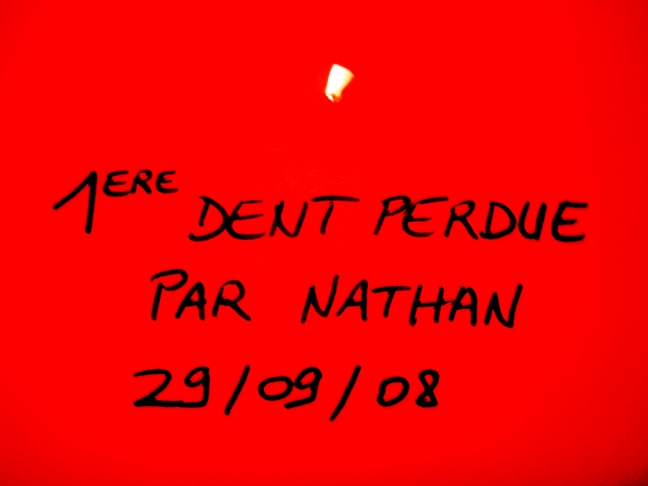 1ERE DENT PERDUE
PAR NATHAN
29/09/08